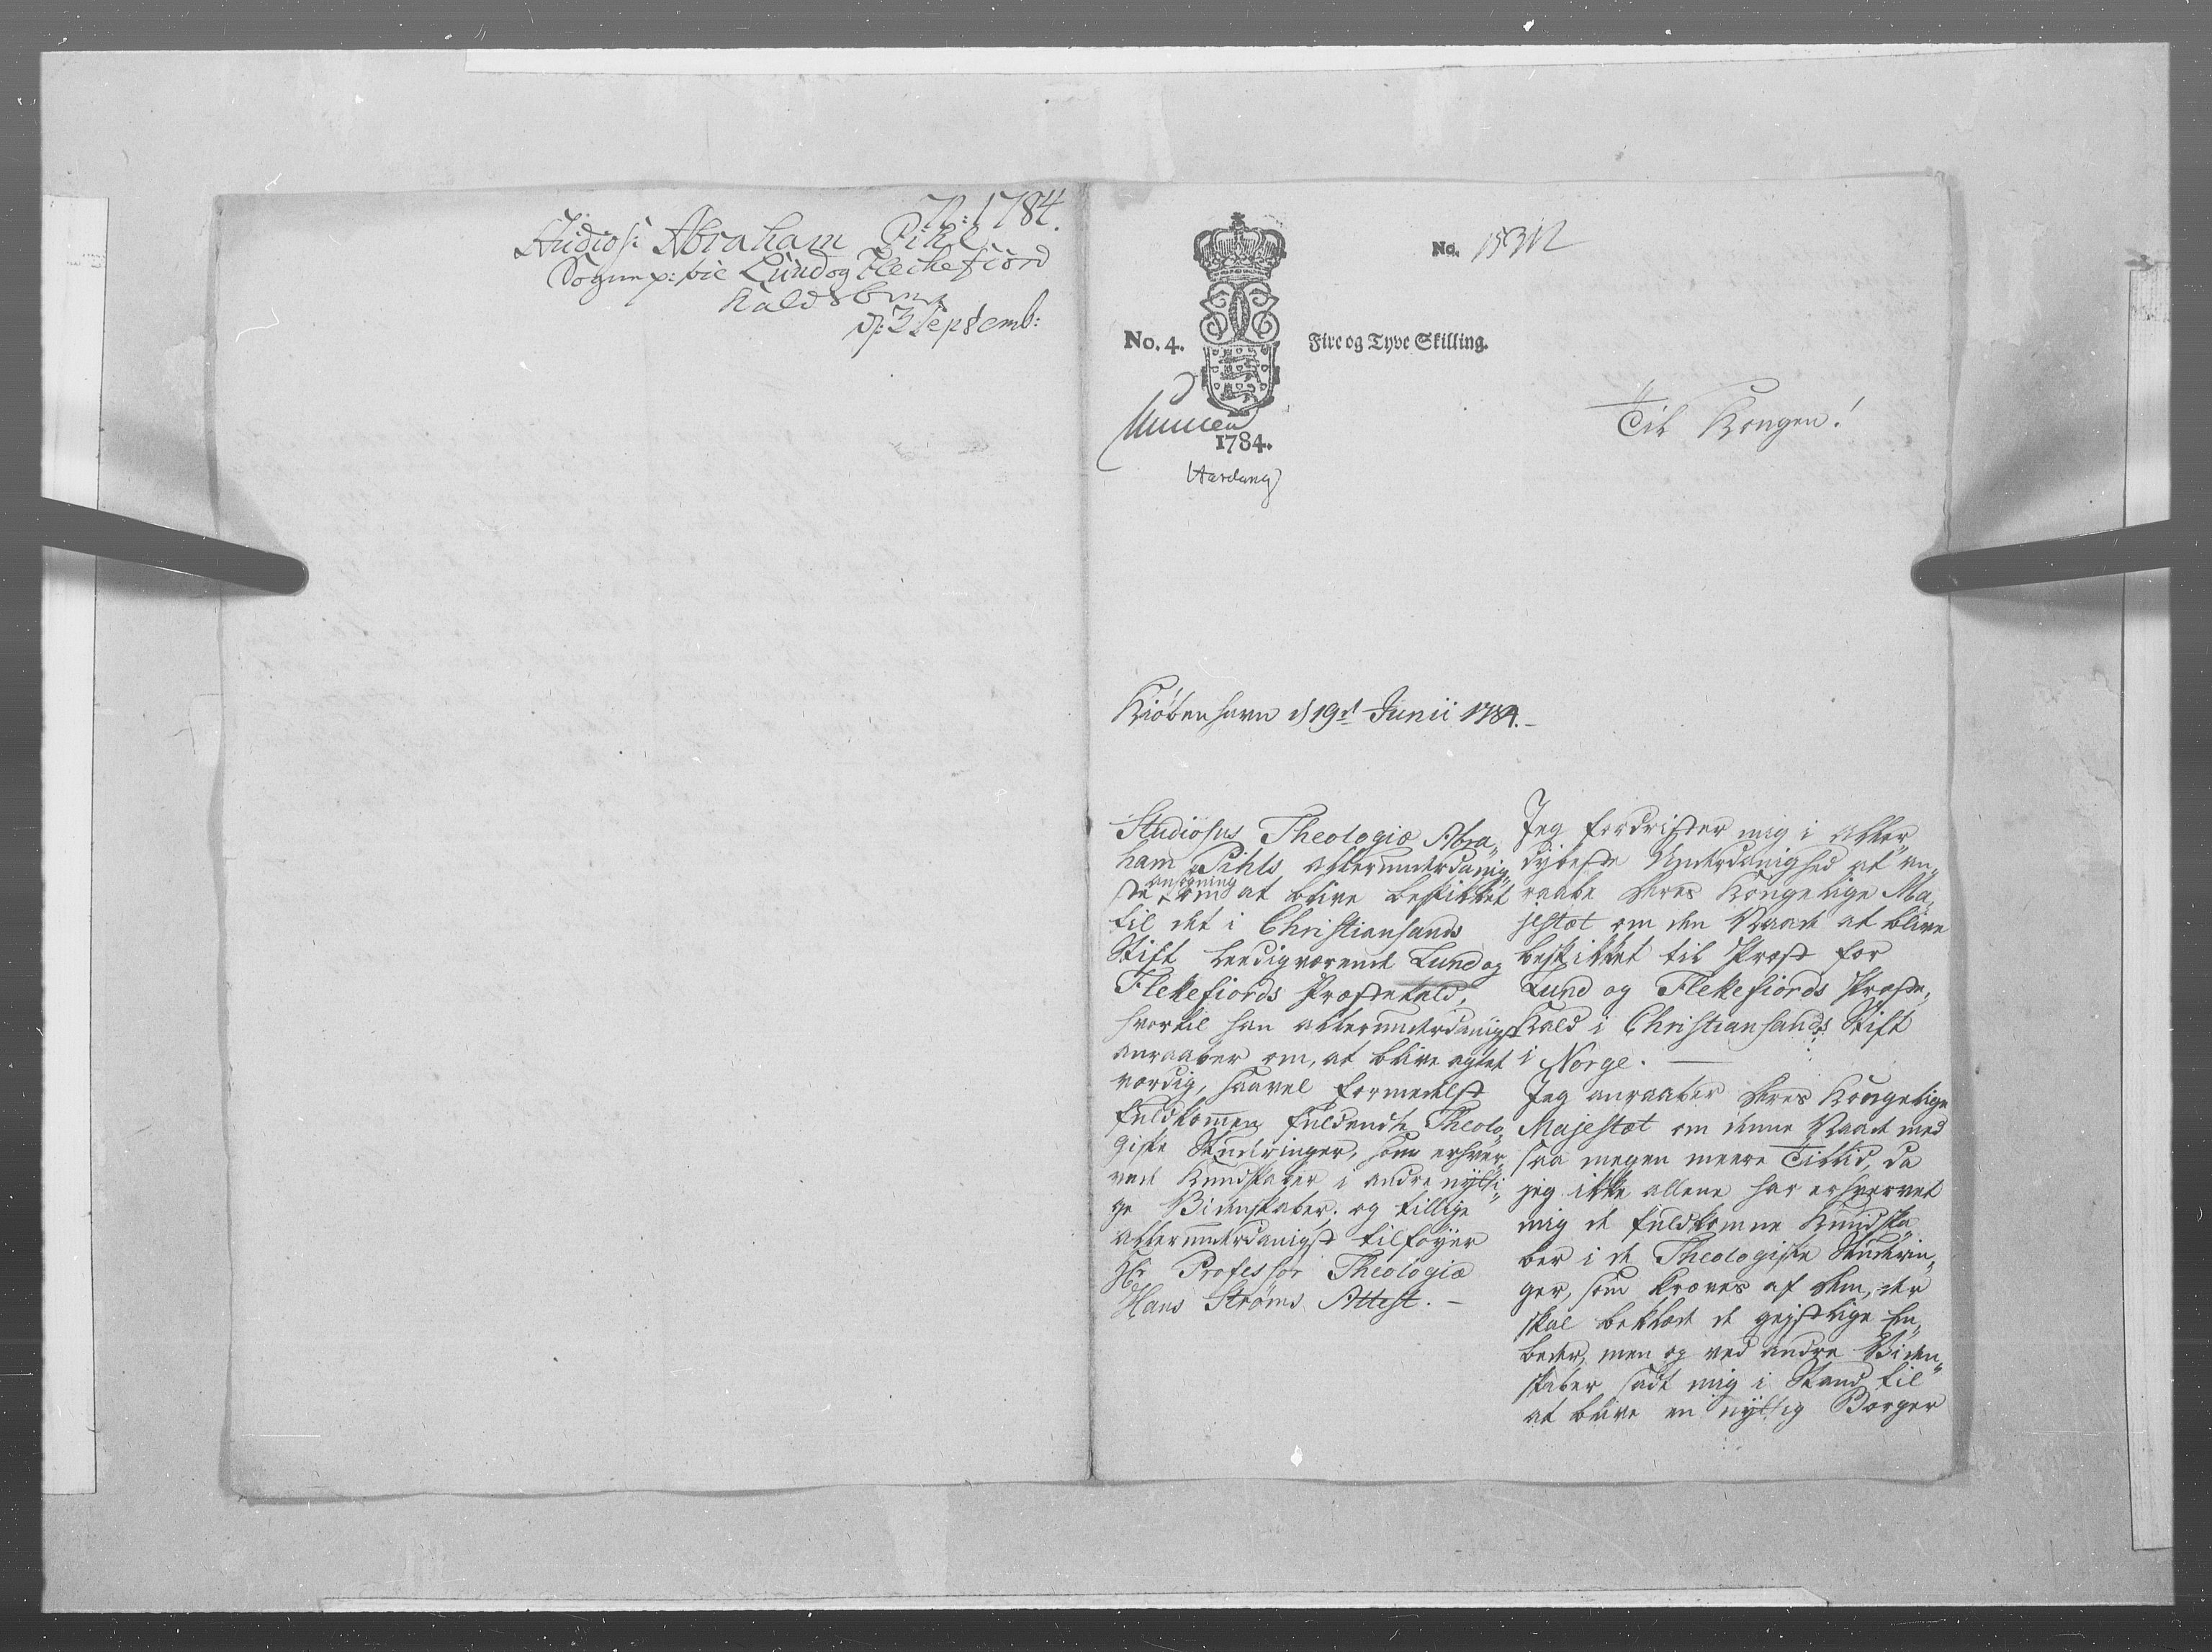 N: 1784.
Studios: Abraham Pihl
Sogne p: til Lund og Fleckefiord
Kald
d: 3 Septemb:
No. 1531 1/2
No. 4.
Fire og Tyve Skilling.
1784.
Til Kongen!
Kiöbenhavn d 19d Junii 1784.-
Studiosus Theologiæ Abra„
ham Pihls allerunderdanig„
ste ansögning om at blive beskikket
til det i Christiansands
Stift Leedigværende Lund og
Flekkefiords Præstekald,
hvortil han allerunderdanigst
anraaber om, at blive agtet
værdig, saavel formedelst
fuldkommen fuldendte Theolo„
giske Studeringer, som erhver„
vede Kundskaber i andre nytti„
ge Videnskaber. og tillige
allerunderdanigst tilföyer
Hr Professor Theologiæ
Hans Ströms Attest. -
Jeg fordrister mig i aller„
dybeste Underdanighed at an„
raabe Deres Kongelige Ma„
jestæt om den Naade at blive
beskikket til Præst for
Lund og Flekkefiords Præste„
Kald i Christiansands Stift
i Norge. —
Jeg anraaber Deres Kongelige
Majestæt om denne Naade med
saa megen meere Tillid, da
jeg ikke allene har erhvervet
mig de fuldkomne Kundska„
ber i de Theologiske Studerin„
ger, som kræves af dem, der
skal beklæde de gejstlige Em„
beder, men og ved andre Viden„
skaber sadt mig i Stand til
at blive en nyttig Borger